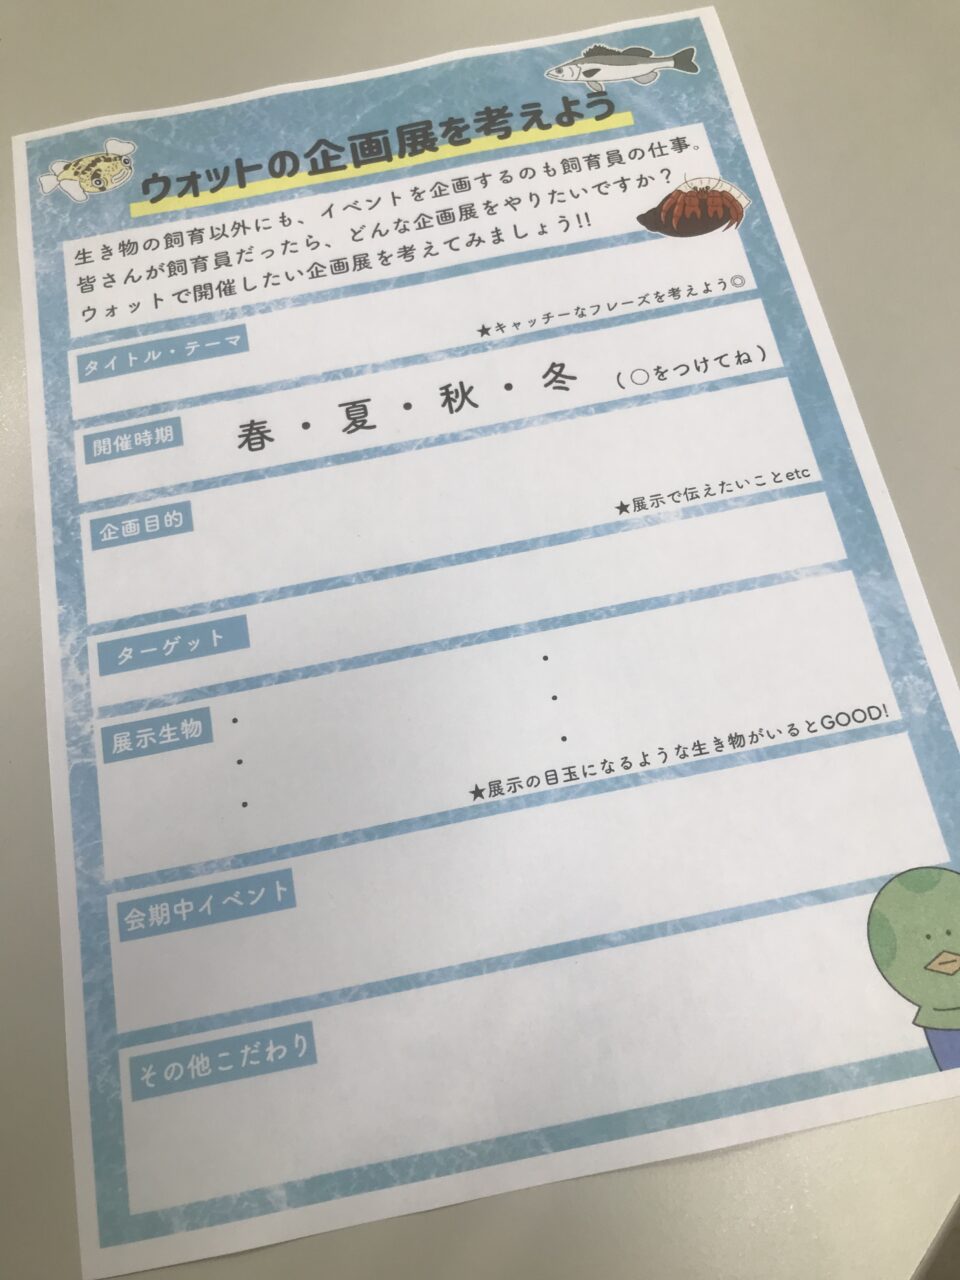 ウォットの企画展を考えよう
生き物の飼育以外にも、イベントを企画するのも飼育員の仕事。
皆さんが飼育員だったら、どんな企画展をやりたいですか？
ウォットで開催したい企画展を考えてみましょう!!
タイトル・テーマ
★キャッチーなフレーズを考えよう◎
開催時期
春・夏・秋・冬 (○をつけてね)
企画目的
★展示で伝えたいことetc
ターゲット
展示生物
・ ・
・ ・
・ ・
★展示の目玉になるような生き物がいるとGOOD!
会期中イベント
その他こだわり